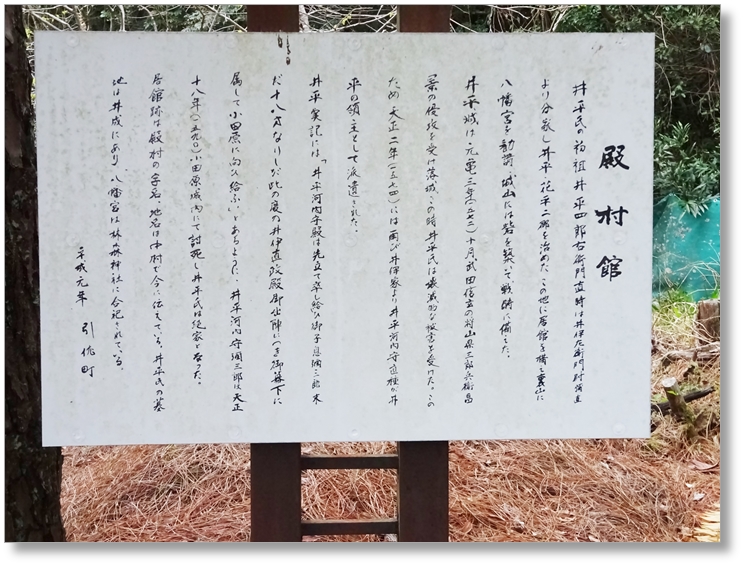 殿村館
井平氏の初祖井平四郎右衛門直時は井伊左衛門尉弥直
より分家し井平、花平二郷を治めた。この地に居館を構え裏山に
八幡宮を勧請、城山には砦を築いて戦時に備えた。
井平城は、元亀三年(一五七二)十月、武田信玄の将山県三郎兵衛昌
景の侵攻を受け落城、この時井平氏は壊滅的な被害を受けた。この
ため天正二年(一五七四)には再び井伊家より井平河内守直種が井
平の領主として派遣された。
井平実記には、「井平河内守殿は先立て卒し給い御子息彌三郎未
だ十八才なりしが此の度の井伊直政殿御出陣につき御幕下に
属して小田原に向ひ給ふ」とあるように、井平河内守彌三郎は天正
十八年(一五九〇)小田原城内にて討死し井平氏は絶家となった。
居館跡は殿村の字名、地名は中村で今に伝えている。井平氏の墓
地は井成にあり、八幡宮は林森神社に合祀されている。
平成元年 引佐町